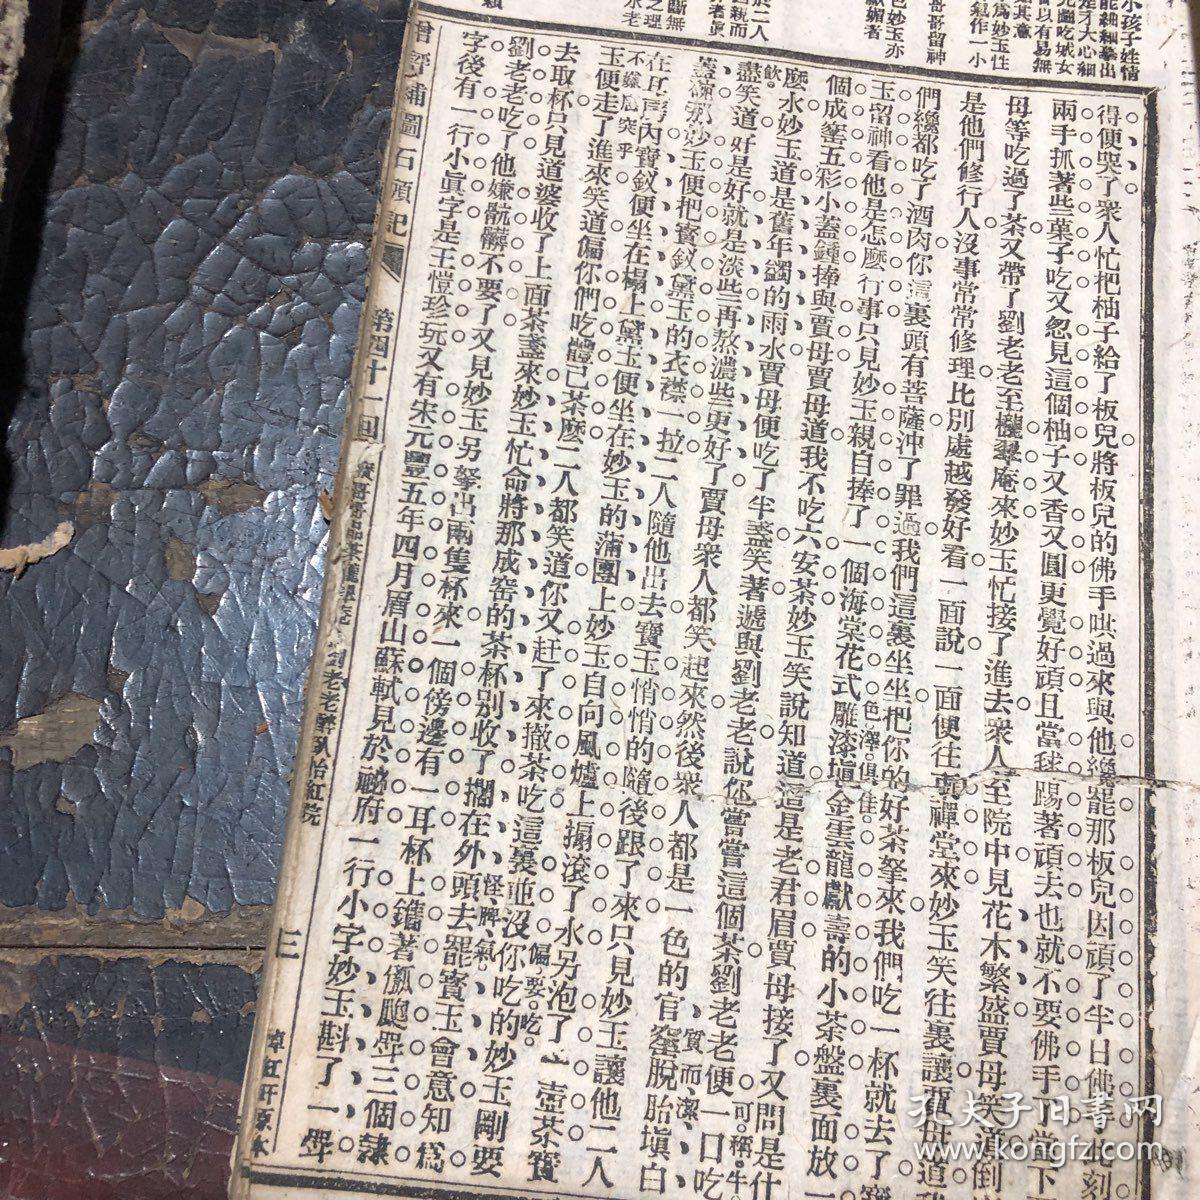 得便哭了衆人忙把柚子給了板兒將板兒的佛手哄過來與他纔罷那板兒因頑了半日佛手此刻
兩手抓著些菓子吃又忽見這個柚子又香又圓更覺好頑且當毬踢著頑去也就不要佛手了當下
母等吃過了茶又帶了劉老老至櫳翠庵來妙玉忙接了進去衆人至院中見花木繁盛賈母笑道倒
是他們修行人沒事常常修理比別處越發好看一面說一面便往東禪堂來妙玉笑往裏讓賈母道我
們纔都吃了酒肉你這裏頭有菩薩沖了罪過我們這裏坐坐把你的好茶拏來我們吃一杯就去了寶
玉留神看他是怎麼行事只見妙玉親自捧了一個海棠花式雕漆塡金雲龍獻壽的小茶盤裏面放一
個成窰五彩小蓋鍾捧與賈母賈母道我不吃六安茶妙玉笑說知道這是老君眉賈母接了又問是什
麼水妙玉道是舊年蠲的雨水賈母便吃了半盞笑著遞與劉老老說你嘗嘗這個茶劉老老便一口吃
盡笑道好是好就是淡些再熬濃些更好了賈母衆人都笑起來然後衆人都是一色的官窰脫胎塡白
蓋碗那妙玉便把寶釵黛玉的衣襟一拉二人隨他出去寶玉悄悄的隨後跟了來只見妙玉讓他二人
在耳房內寶釵便坐在榻上黛玉便坐在妙玉的蒲團上妙玉自向風爐上搧滾了水另泡了一壺茶寶
玉便走了進來笑道偏你們吃體己茶麼二人都笑道你又赶了來撤茶吃這裏並沒你吃的妙玉剛要
去取杯只見道婆收了上面茶盞來妙玉忙命將那成窑的茶杯別收了擱在外頭去罷寶玉會意知爲
劉老老吃了他嫌骯髒不要了又見妙玉另拏出兩隻杯來一個傍邊有一耳杯上鐫著𤫫瓟斝三個隸
字後有一行小眞字是王愷珍玩又有宋元豐五年四月眉山蘇軾見於祕府一行小字妙玉斟了一斝
增評補圖石頭記 第四十一回 三
孔夫子旧书网
kongfz.com